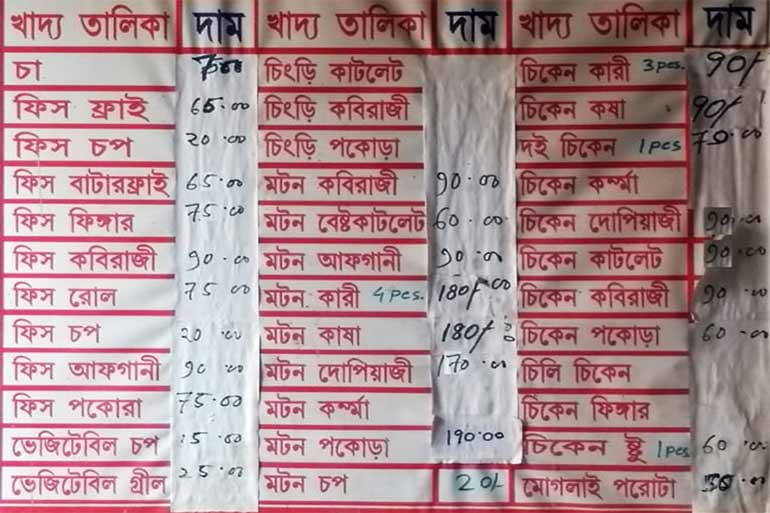 খাদ্য তালিকা দাম খাদ্য তালিকা দাম খাদ্য তালিকা দাম
চা চিংড়ি কাটলেট চিকেন কারী 3 pcs. 90/
ফিস ফ্রাই 65.00 চিংড়ি কবিরাজী চিকেন কষা 90/
ফিস চপ 20.00 চিংড়ি পকোড়া দই চিকেন 1 pcs 70.00
ফিস বাটারফ্রাই 65.00 মটন কবিরাজী 90.00 চিকেন কর্ম্মা
ফিস ফিঙ্গার 75.00 মটন বেষ্টকাটলেট 60.00 চিকেন দোপিয়াজী 90.00
ফিস কবিরাজী 90.00 মটন আফগানী 90.00 চিকেন কাটলেট 90.00
ফিস রোল 75 00 মটন কারী 4 pcs. 180/ 00 চিকেন কবিরাজী 90.00
ফিস চপ 20.00 মটন কাষা 180/ চিকেন পকোড়া 60.00
ফিস আফগানী 90.00 মটন দোপিয়াজী 170.00 চিলি চিকেন
ফিস পকোরা 75.00 মটন কর্ম্মা চিকেন ফিঙ্গার
ভেজিটেবিল চপ 15.00 মটন পকোড়া 190.00 চিকেন ষ্টু 1 pcs 60.00
ভেজিটেবিল গ্রীল 25.00 মটন চপ 20/ মোগলাই পরোটা